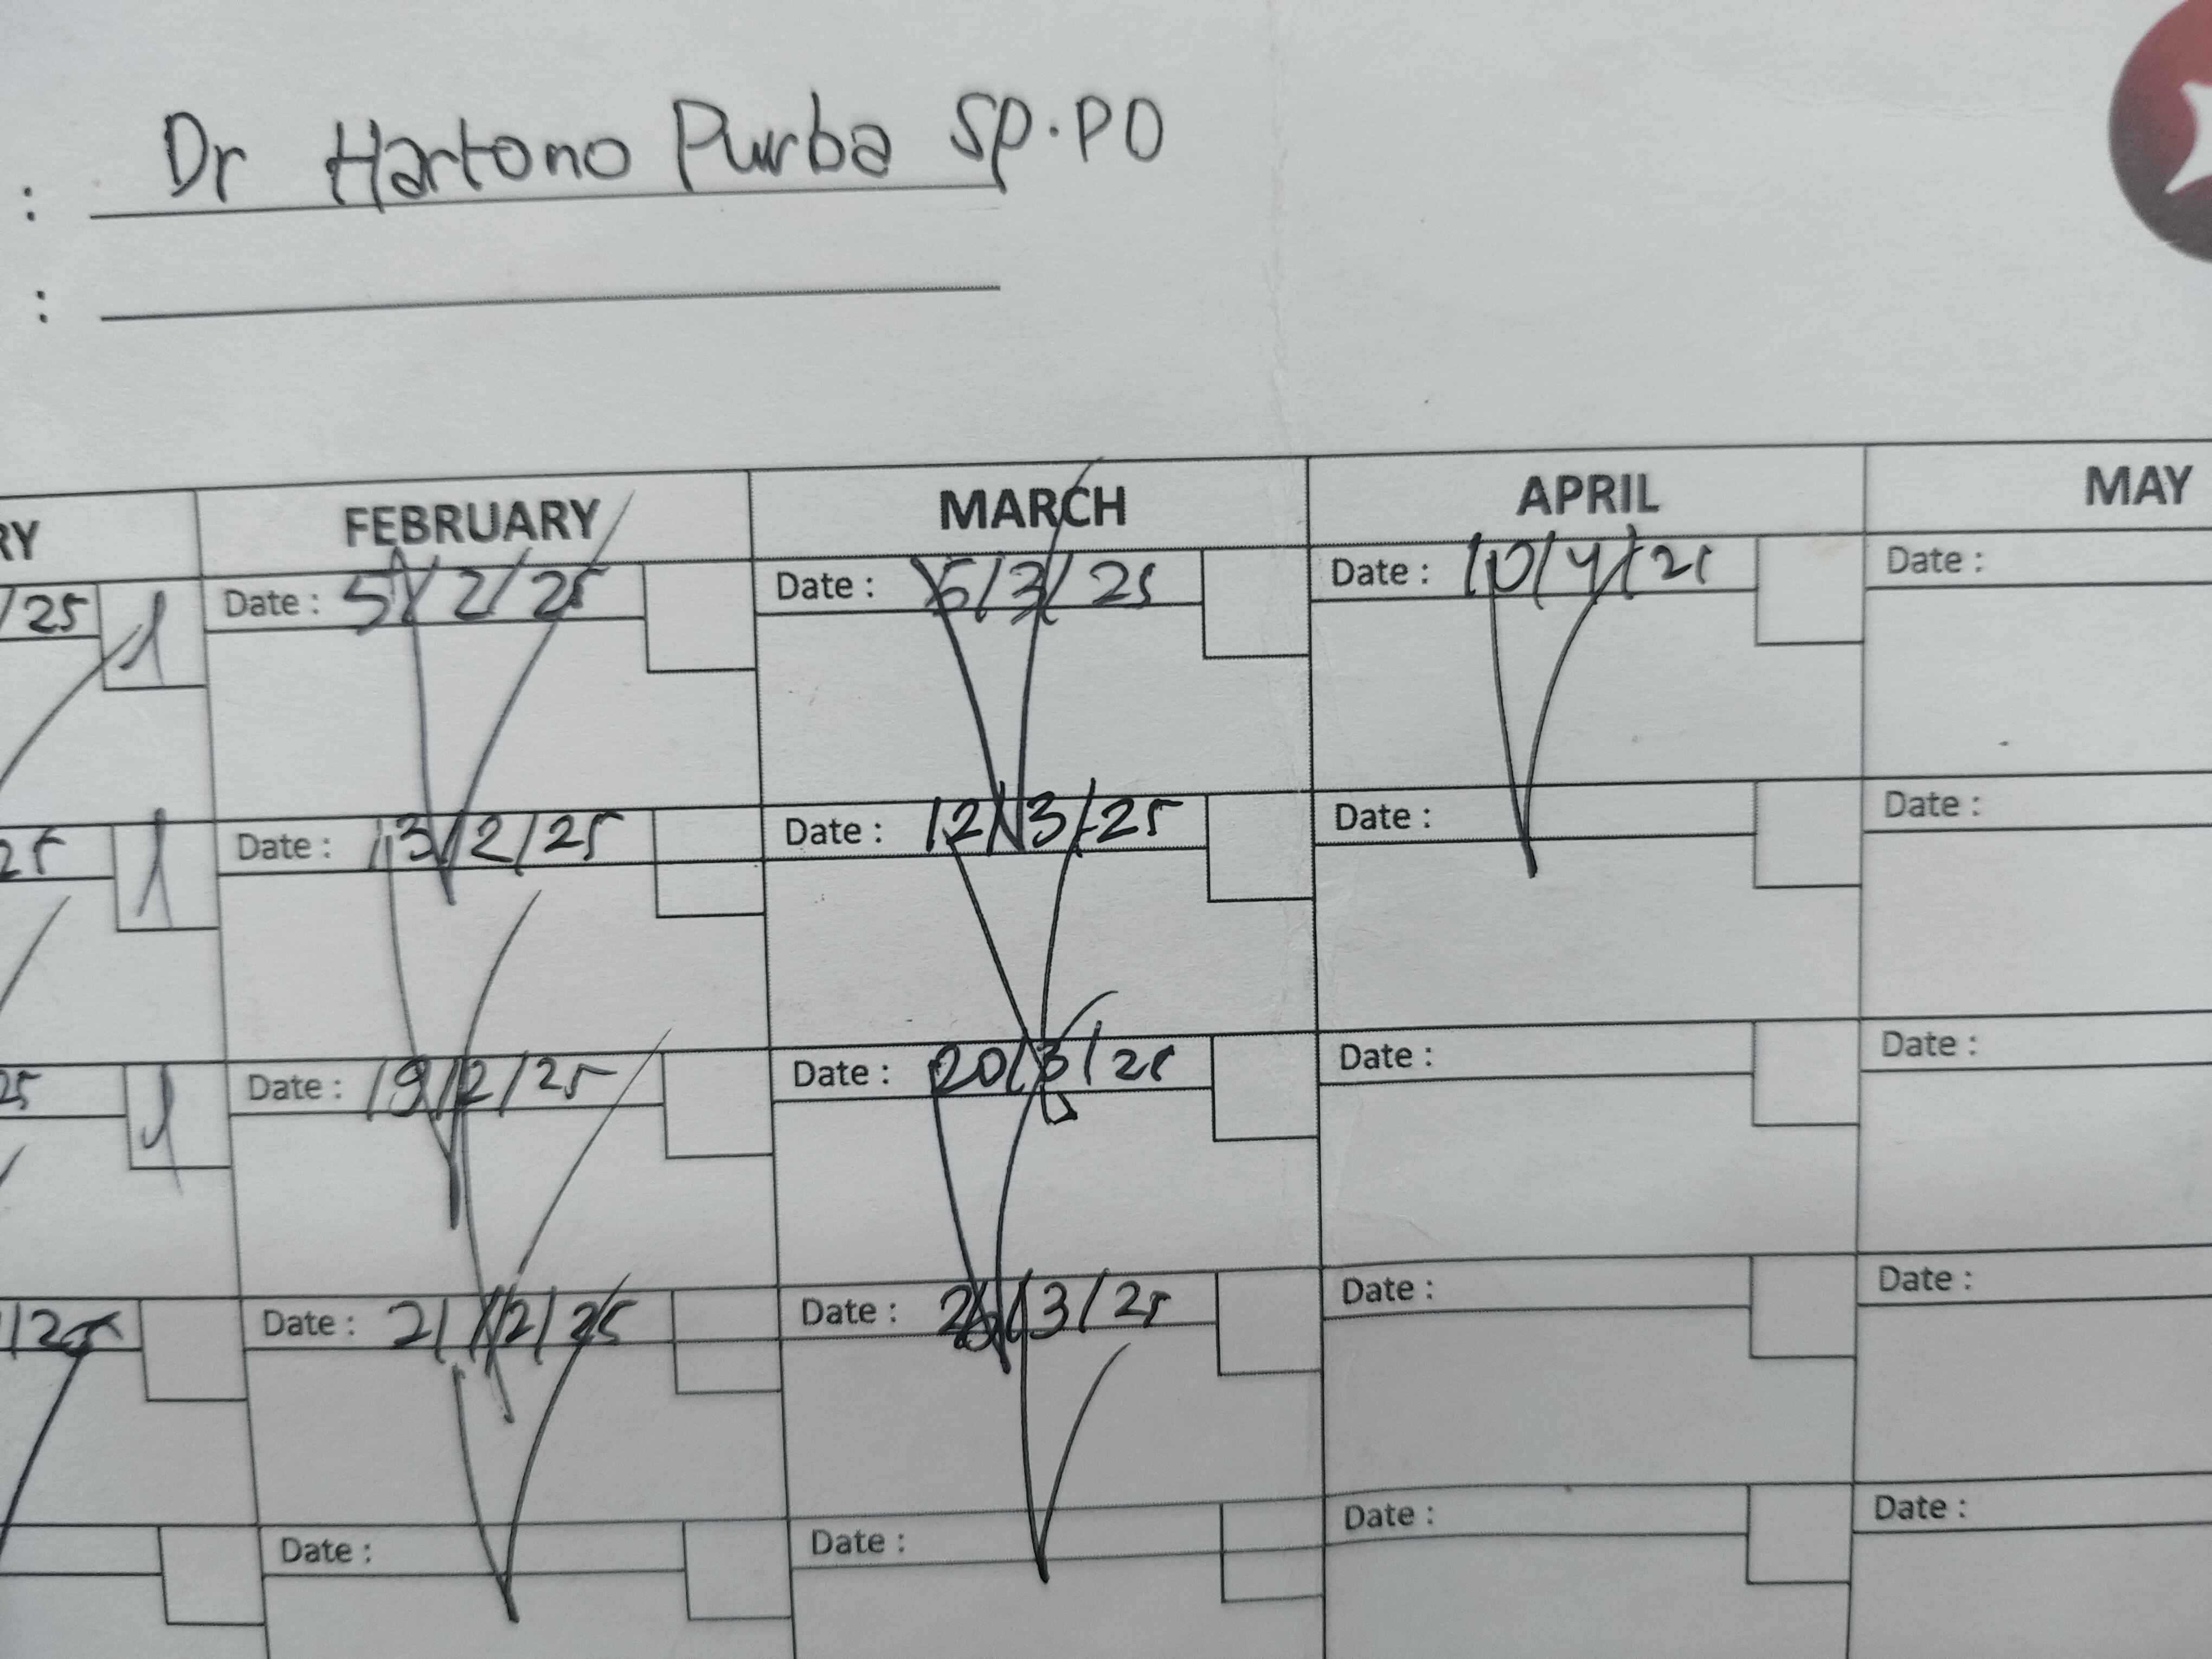 : Dr Hartono Purba Sp.PD
:
RY FEBRUARY MARCH APRIL MAY
/25 1 Date : 5/2/25 Date : 5/3/25 Date : 10/4/25 Date :
25 1 Date : 13/2/25 Date : 12/3/25 Date : Date :
25 1 Date : 19/2/25 Date : 20/3/25 Date : Date :
/25 Date : 21/2/25 Date : /3/25 Date : Date :
Date : Date : Date : Date :